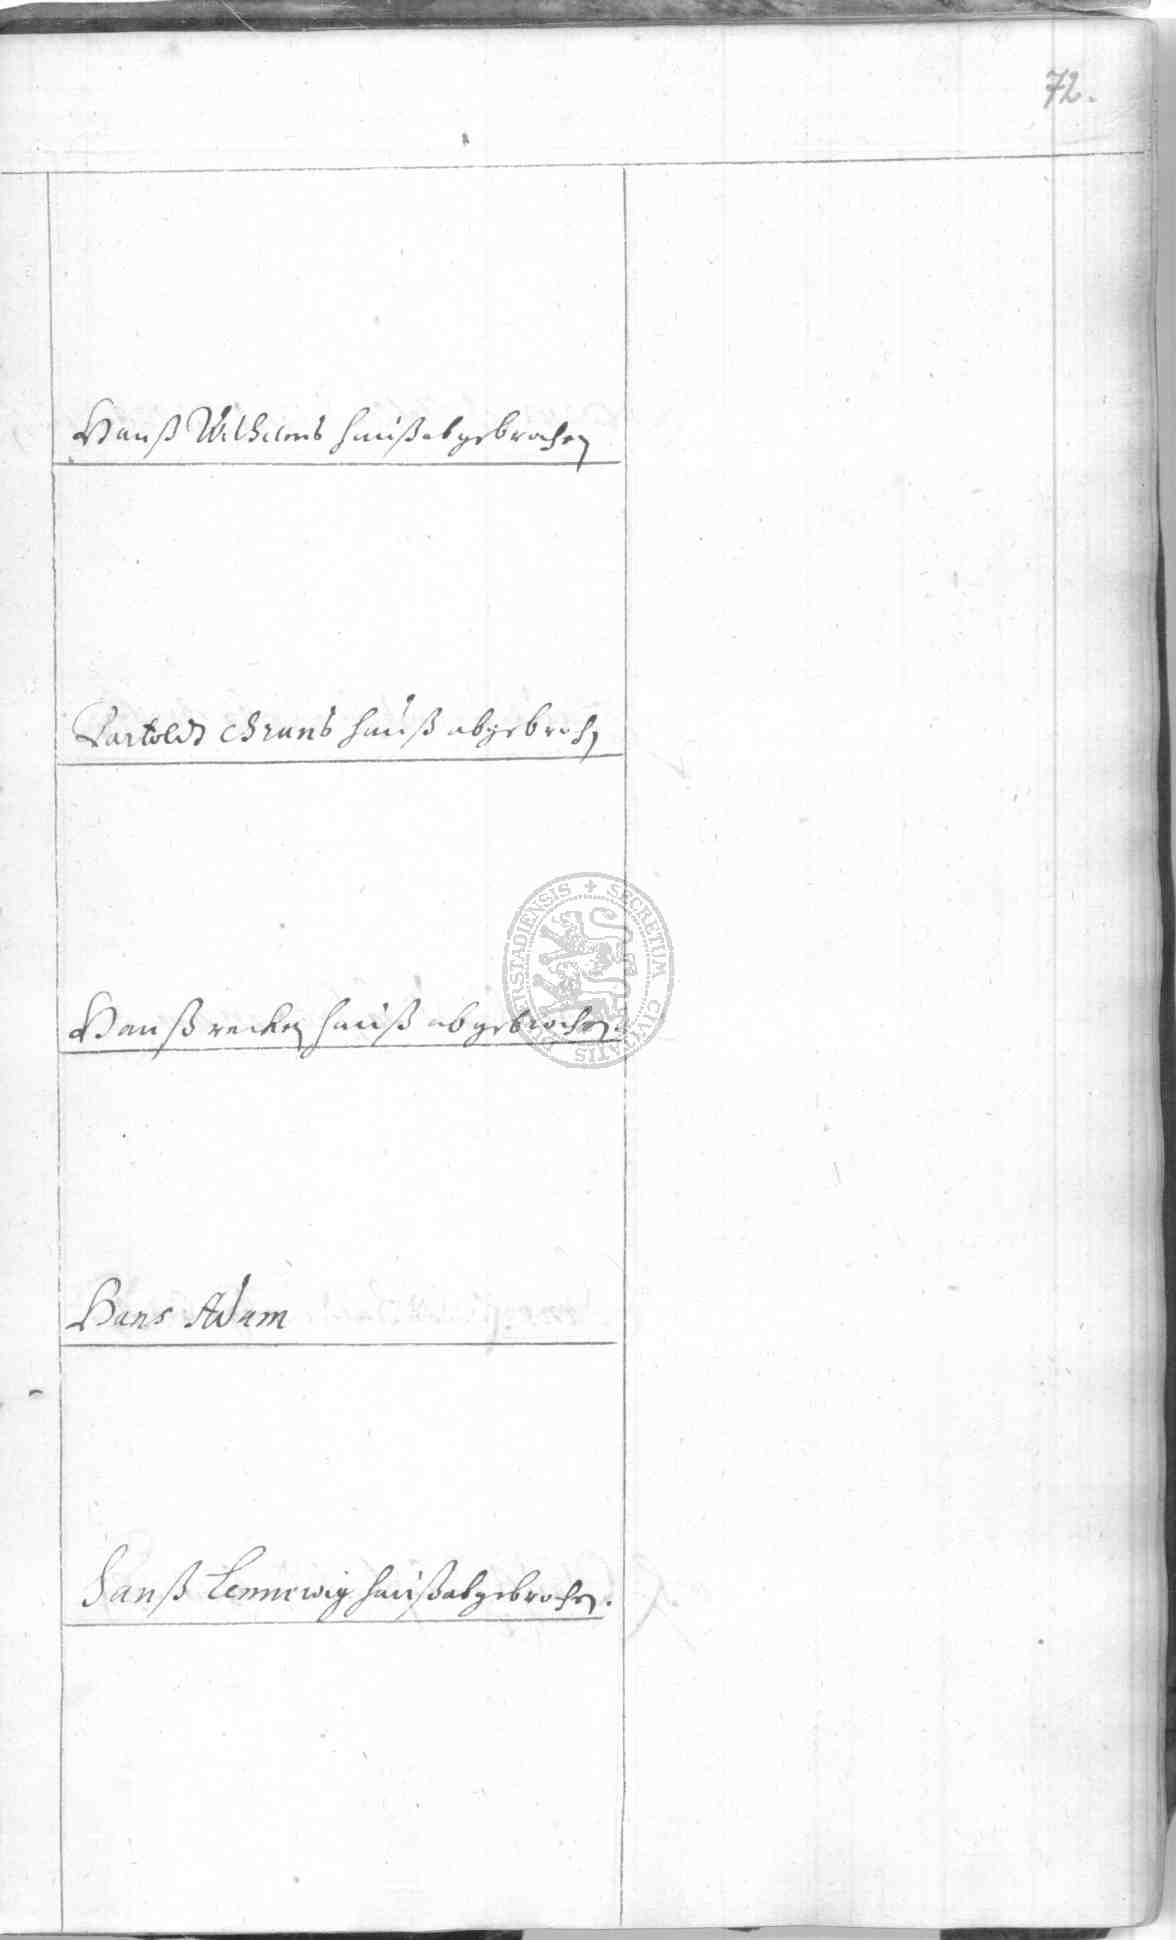 72.
Hanß Wilhelms hauß abgebrochen
Bartoldt Bruns hauß abgebroch
Hanß recken hauß abgebrochen.
Hans Adam
Hanß Lennewig hauß abgebrochen.
+ SECRETUM CIVITATIS DUDERSTADIENSIS